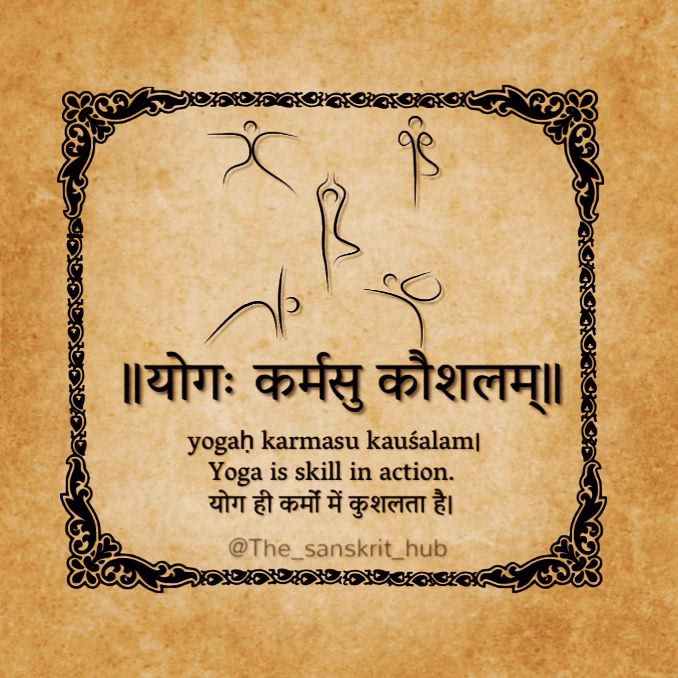 ॥योगः कर्मसु कौशलम्॥
yogaḥ karmasu kauśalam|
Yoga is skill in action.
योग ही कर्मो में कुशलता है।
@The_sanskrit_hub